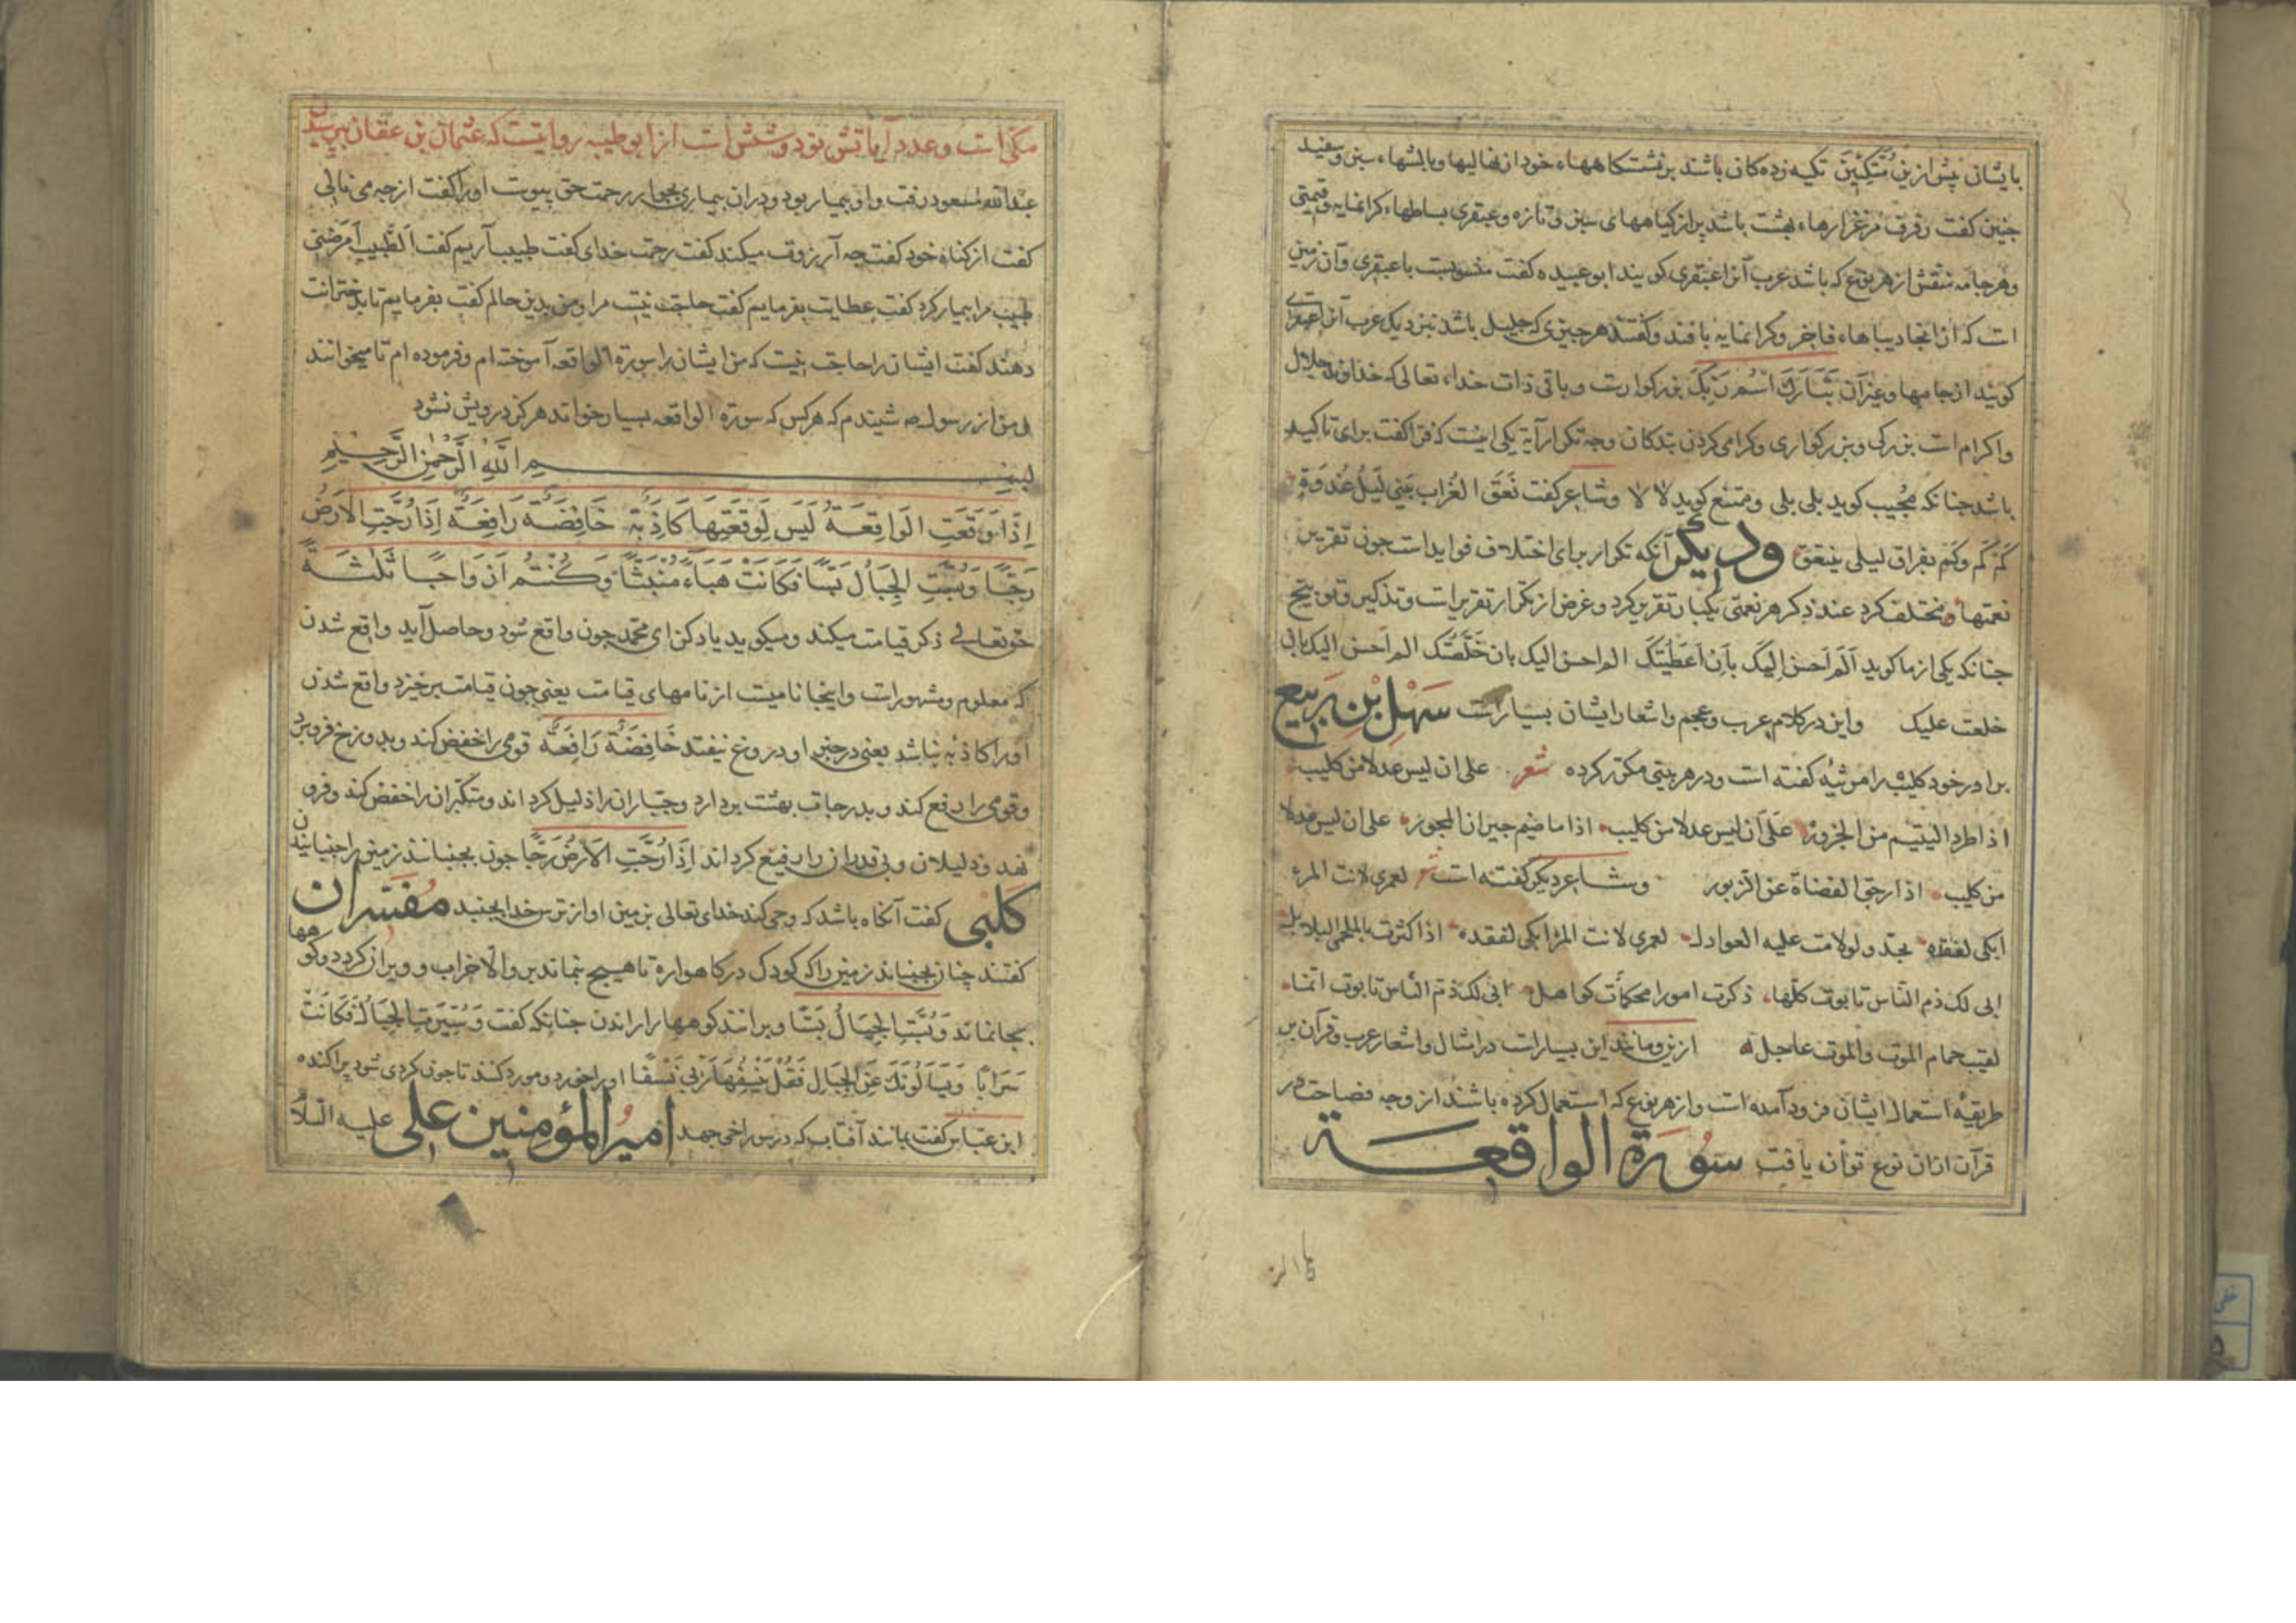 بایشان پیش ازین مُتَّکِئِینَ تکیه زده کان باشند بر نشستکاهها، خود از نهالیها و بالشها، سبز و سفید
جنین کفت رفرف مرغزارها، بهشت باشد پر از کیاههای سبز تازه و عبقری بساطها، کرانمایه و قیمتی
و هر جامه منقش از هر نوع که باشد عرب آنرا عبقری کویند ابو عبیده کفت منسوبست با عبقری و آن زمین
است که از انجا دیباها، فاخر و کرانمایه بافند و کفتند هر چیزی که جلیل باشد بنزدیک عرب آنرا عبقری
کویند از جامها و غیر آن تَبَارَكَ اسْمُ رَبِّكَ بزرکوارست و باقی ذات خدا، تعالی که خداوند جلال
و اکرام است بزرکی و بزرکواری و کرامی کردن بندکان وجه تکرار آیة یکی اینست که فرا کفت برای تاکید
باشد جنانکه مُجیب کوید بلی بلی و ممتنع کوید لا لا و شاعر کفت نَعَقَ الغُراب بَینی لَیلُ غُدوَةٍ
کَم کَم وکَم بفراق لیلی ینعق ودیگر آنکه تکرار برای اختلاف فواید است جون تقریر
نعمتها و مختلف کرد عند ذکر هر نعمتی یکبار تقریر کرد و غرض از تکرار تقریر است و تذکیر و توبیخ
جنانکه یکی از ما کوید اَلَم اَحسن اِلیکَ بِاَن اَعطَیتُکَ الم احسن الیک بان خَلَّصتُکَ الم احسن الیک بانی
خلعت علیک و این در کلام عرب و عجم و اشعار ایشان بسیار است سَهْلِ بْنِ رَبیع
برادر خود کلیب را مرثیه کفته است و در هر بیتی مکرر کرده شعر علی ان لیس عدلا من کلیب
اذا طرد الیتیم من الجزور علی ان لیس عدلا من کلیب اذا ما ضیم جیران المجور علی ان لیس عدلا
من کلیب اذا رجی الفضاة عن الزبور و شاعر دیکر کفته است شعر لعمری لانت المرء
ابکی لفقده بجد ولو لامت علیه العواذل لعمری لانت المرء ابکی لفقده اذا کثرت بالملحمی البلابل
ابی لک ذم الناس تابوت کلها ذکرت امورا محکمات کواهل ابی لک ذم الناس تابوت انما
لقیت حمام الموت والموت عاجل ازین و مانند این بسیار است در امثال و اشعار عرب و قرآن بر
طریقهٔ استعمال ایشان فرود آمده است و از هر نوع که استعمال کرده باشند از وجه فصاحت در
قرآن از ان نوع توان یافت سُورَة الواقعـة
مکی است و عدد آیاتش نود و شش است از ابو طیبه روایتست که عثمان بن عفان بپرسیدن
عبدالله مسعود رفت و او بیمار بود و دران بیماری بجوار رحمت حق پیوست او را کفت از چه می نالی
کفت از کناه خود کفت چه آرزوت میکند کفت رحمت خدای کفت طبیب آریم کفت الطَّبیب اَمرَضنی
طبیب مرا بیمار کرد کفت عطایت بفرمایم کفت حاجت نیست مرا و من بدین حالم کفت بفرمایم تا بدخترانت
دهند کفت ایشان را حاجت نیست که من ایشان را سورة الواقعه آموخته ام و فرموده ام تا میخوانند
و من از رسول صه شنیدم که هرکس که سورة الواقعه بسیار خواند هرکز درویش نشود
بسم الله الرحمن الرحیم
اِذَا وَقَعَتِ الْوَاقِعَةُ لَیْسَ لِوَقْعَتِهَا كَاذِبَةٌ خَافِضَةٌ رَافِعَةٌ اِذَا رُجَّتِ الْاَرْضُ
رَجًّا وَبُسَّتِ الْجِبَالُ بَسًّا فَكَانَتْ هَبَاءً مُنْبَثًّا وَكُنْتُمْ اَزْوَاجًا ثَلٰثَةً
حق تعالی ذکر قیامت میکند و میکوید یاد کن ای محمد جون واقع شود و حاصل آید واقع شدن
که معلوم و مشهور است و اینجا نامیست از نامهای قیامت یعنی جون قیامت برخیزد واقع شدن
او را کاذبه نباشد یعنی در خبر او دروغ نیفتد خَافِضَةٌ رَافِعَةٌ قومی را خفض کند و بدوزخ فرو برد
و قومی را رفع کند و بدرجات بهشت بردارد و جبّاران را ذلیل کرداند و متکبران را خفض کند و فرو
نهد و ذلیلان و بی قدران را رفیع کرداند اِذَا رُجَّتِ الاَرْضُ رَجًّا جون بجنبانند زمین را جنبانیدن
کَلْبی کفت آنکاه باشد که وحی کند خدای تعالی بزمین او از ترس خدا بجنبد مُفَسّران
کفتند چنان بجنبانند زمین را که کودک در کاهواره تا هیچ بنماند برو الا خراب و ویران کردد و کوهها
بجا نماند وَبُسَّتِ الْجِبَالُ بَسًّا و برانند کوهها را راندن جنانکه کفت وَسُیِّرَتِ الْجِبَالُ فَکَانَتْ
سَرَابًا وَیَسْاَلُونَكَ عَنِ الْجِبَالِ فَقُلْ یَنْسِفُهَا رَبّی نَسْفًا او را خورد و مورد کنند تا جون کردی شود پراکنده
ابن عبّاس کفت بمانند آفتاب که در سوراخی جهد امیرُ المؤمنین علی علیه السلام